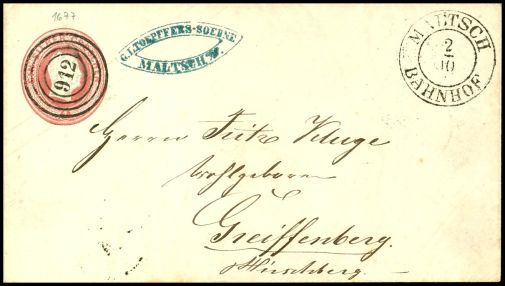 1677
C.I. TOEPFFERS-SOEHNE
MALTSCH a/O.
912
MALTSCH
2
10
BAHNHOF
Herrn Fritz Kluge
Wohlgeboren
Greiffenberg.
Hirschberg.